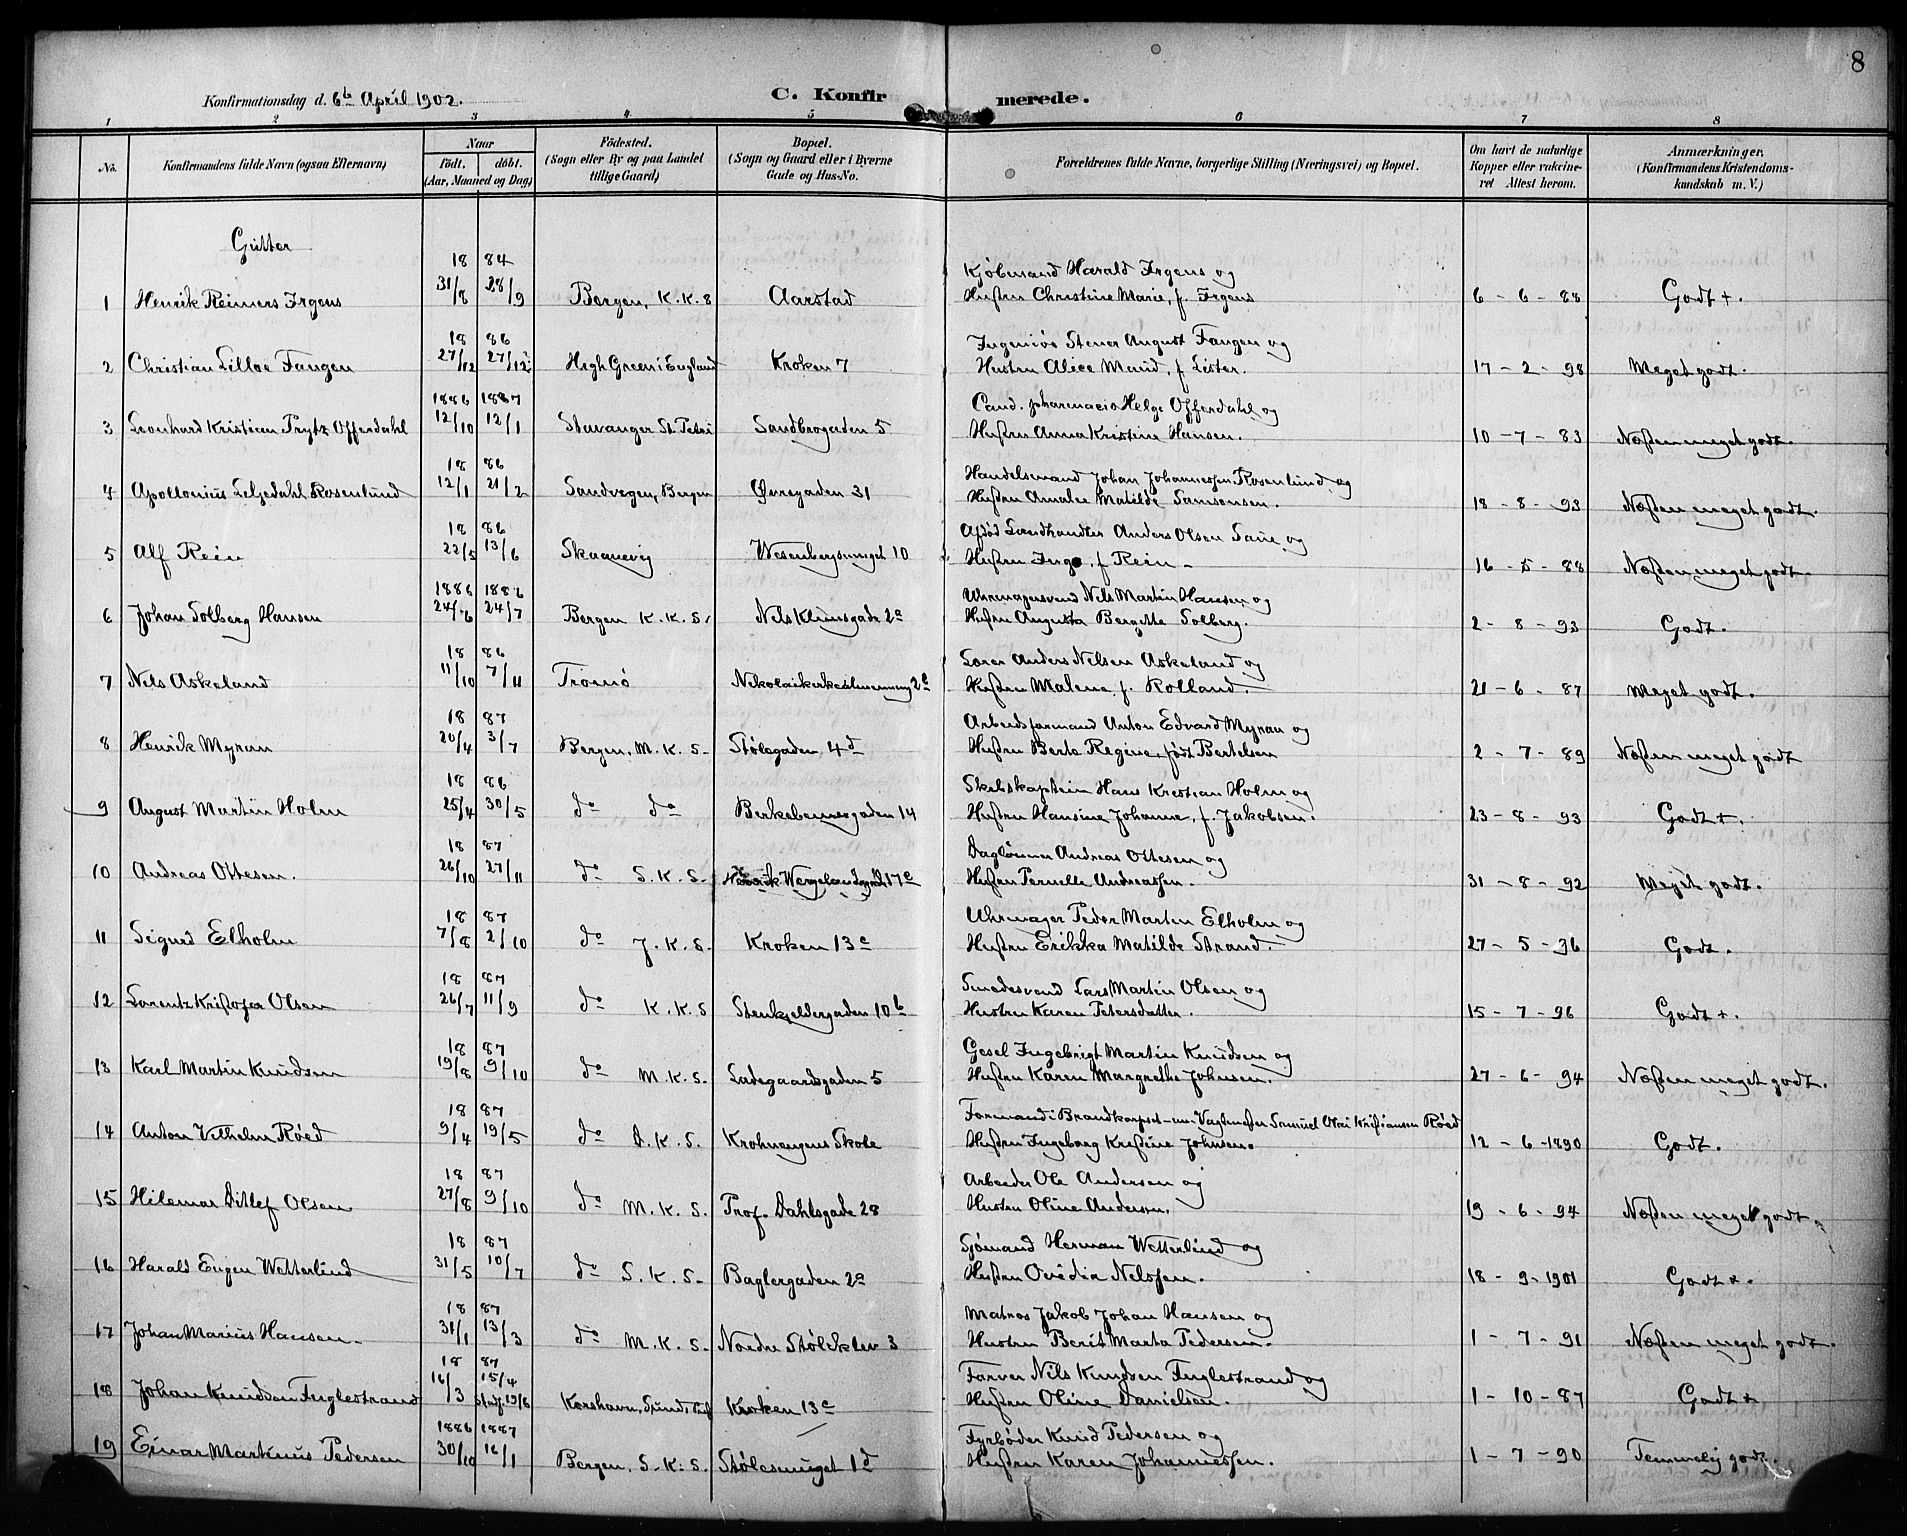 8
Konfirmationsdag d. 6te April 1902.
C. Konfirmerede.
1 2 3 4 5 6 7 8
No.
Konfirmandens fulde Navn (ogsaa Efternavn)
Naar
født. døbt.
(Aar, Maaned og Dag)
Fødested.
(Sogn eller By og paa Landet
tillige Gaard)
Bopæl.
(Sogn og Gaard eller i Byerne
Gade og Hus-No.
Forældrenes fulde Navne, borgerlige Stilling (Næringsvei) og Bopæl.
Om havt de naturlige
Kopper eller vakcine-
ret Attest herom.
Anmærkninger.
(Konfirmandens Kristendoms-
kundskab m. V.)
Gutter
18 84
Kjøbmand Harald Irgens og
1 Henrik Reimers Irgens 31/8 28/9 Bergen, K.K.S Aarstad Hustru Christine Marie, f. Irgens 6 - 6 - 88 Godt +.
18 86
Ingeniør Stener August Fangen og
2 Christian Lilloe Fangen 27/12 27/12 High Green i England Kroken 7 Hustru Alice Maud, f Lister. 17 - 2 - 98 Meget godt.
1886 1887
Cand. pharmacia Helge Offerdahl og
3 Leonhard Kristian Prytz Offerdahl 12/10 12/1 Stavanger St. Petri Sandbrogaden 5 Hustru Anna Kristine Hansen. 10 - 7 - 83 Næsten meget godt.
18 86
Handelsmand Johan Johannessen Rosenlund og
4 Apollonius Seljedahl Rosenlund 12/1 21/2 Sandvegen, Bergen Øvregaden 31 Hustru Amalie Matilde Samsonsen. 18 - 8 - 93 Næsten meget godt.
18 86
Afdød Landhandler Anders Olsen og
5 Alf Rein 22/5 13/6 Skaanevig Wesenbergsmuget 10 Hustru Inga, f Rein - 16 - 5 - 88 Næsten meget godt.
1886 1886
Uhrmagersvend Nils Martin Hansen og
6 Johan Solberg Hansen 24/6 24/7 Bergen K.K.S. Nels Klimsgade 2a Hustru Augusta Bergitte Solberg. 2 - 8 - 93 Godt.
18 86
Lærer Anders Nilsen Askeland og
7 Nils Askeland 11/10 7/11 Tromø Nikolaikirkealmenning 2a Hustru Malene, f. Rolland. 21 - 6 - 87 Meget godt.
18 87
Arbeidsformand Anton Edvard Myran og
8 Henrik Myran 20/4 3/7 Bergen, M.K.S - Stølegaden 4d Hustru Berte Regine, født Bertelsen 2 - 7 - 89 Næsten meget godt
18 86
Skibskaptein Hans Kristian Holm og
9 August Martin Holm 25/4 30/5 do do Berkebeinergaden 14 Hustru Hansine Johanne, f. Jakobsen. 23 - 8 - 93 Godt +.
18 87
Dagløner Andreas Ottesen og
10 Andreas Ottesen. 26/10 27/11 do S.K.S. 17c Hustru Pernelle Andreassen. 31 - 8 - 92 Meget godt.
18 87
Uhrmager Peder Martin Elholm og
11 Sigurd Elholm 7/8 2/10 do J.K.S. Kroken 13c Hustru Erikka Matilde Strand. 27 - 5 - 96 Godt.
18 87
Smedesvend Lars Martin Olsen og
12 Lorentz Kristofer Olsen 26/7 11/9 do K.K.S Stenkjeldergaden 10b Hustru Karen Petersdatter. 15 - 7 - 96 Godt +.
18 87
Gesel Ingebrigt Martin Knudsen og
13 Karl Martin Knudsen 19/8 9/10 do M.K.S. Ladegaardsgaden 5 Hustru Karen Margrethe Johnsen. 27 - 6 - 94 Næsten meget godt.
18 87
Formand i Brandkorpset Samuel Kristiansen Røed
14 Anton Vilhelm Røed 9/4 19/5 do D.K.S. Krohnengens Skole Hustru Ingeborg Kristine Johnsen. 12 - 6 - 1890 Godt.
18 87
Arbeider Ole Andersen og
15 Hilemar Ditlef Olsen 27/8 9/10 do M.K.S. Prof. Dahlsgade 28 Hustru Oline Andersen. 19 - 6 - 94 Næsten meget godt
18 87
Sjømand Herman Wetterlind og
16 Harald Eugen Wetterlind 31/5 10/7 do S.K.S. Baglergaden 2a Hustru Ovedia Nelssen. 18 - 9 - 1901 Godt +.
18 87
Matros Jakob Johan Hansen og
17 Johan Marius Hansen 31/1 13/3 do M.K.S. Nordre Støleklev 3 Hustru Berit Marta Pedersen. 1 - 7 - 91 Næsten meget godt.
18 87
Farver Nils Knudsen Fuglestrand og
18 Johan Knudsen Fuglestrand 16/3 15/4 Korshavn, Kroken 13c Hustru Oline Danielsen. 1 - 10 - 87 Godt +
1886 1887
Fyrbøder Knud Pedersen og
19 Einar Martinus Pedersen 30/10 16/1 Bergen, S.K.S. Stølesmuget 1d Hustru Karen Johannessen. 1 - 7 - 90 Temmelig godt.